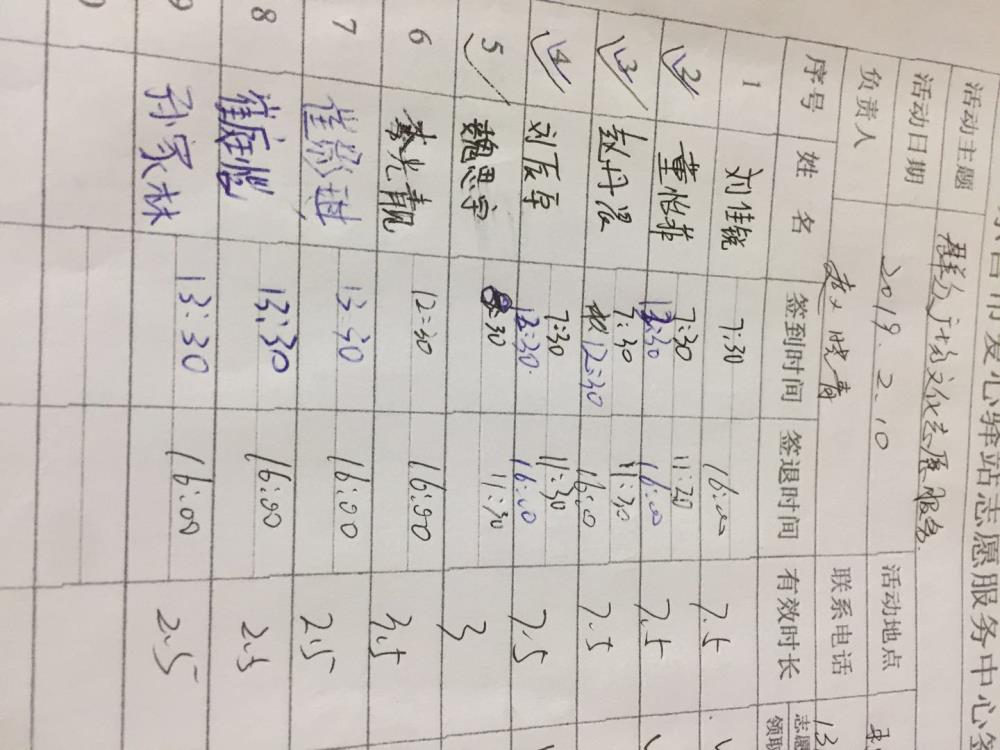 市发心驿站志愿服务中心签
活动主题 群众广场文化志愿服务
活动日期 2019.2.10 活动地点
负责人 赵晓青 联系电话 13
序号 姓名 签到时间 签退时间 有效时长 志愿 领取
1 刘佳锐 7:30 16:00 7.5
2 董怡菲 7:30 11:30 7.5
13:30 16:00
3 赵丹 7:30 11:30 7.5
12:30 16:00
4 刘 7:30 11:30 7.5
12:30 16:00
5 魏思宇 8:30 11:30 3
6 秦光靓 12:30 16:00 3.5
7 崔 琳 13:30 16:00 2.5
8 崔庭 13:30 16:00 2.5
9 孙家林 13:30 16:00 2.5